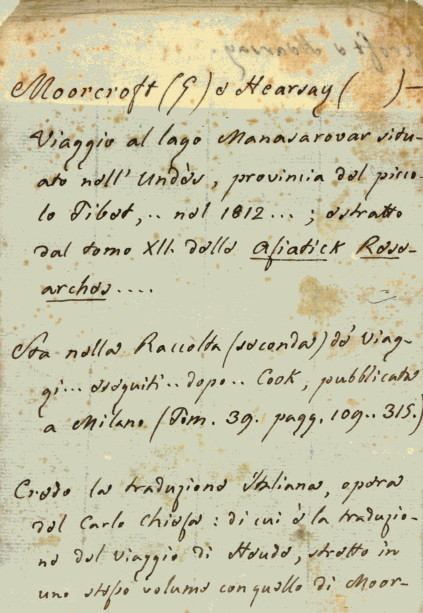 Moorcroft (G) e Hearsay ( ) —
Viaggio al lago Manasarovar situ-
ato nell' Undès, provincia del picco-
lo Tibet, .. nel 1812 ... ; estratto
dal tomo XII. delle Asiatick Rese-
arches ....
Sta nella Raccolta (seconda) de' Viag-
gi ... eseguiti .. dopo .. Cook, pubblicata
a Milano (Tom. 39. pagg. 109 .. 315.)
Credo la traduzione Italiana, opera
del Carlo Chiesa : di cui è la traduzio-
ne del Viaggio di Haude, stretto in
uno stesso volume con quello di Moor-